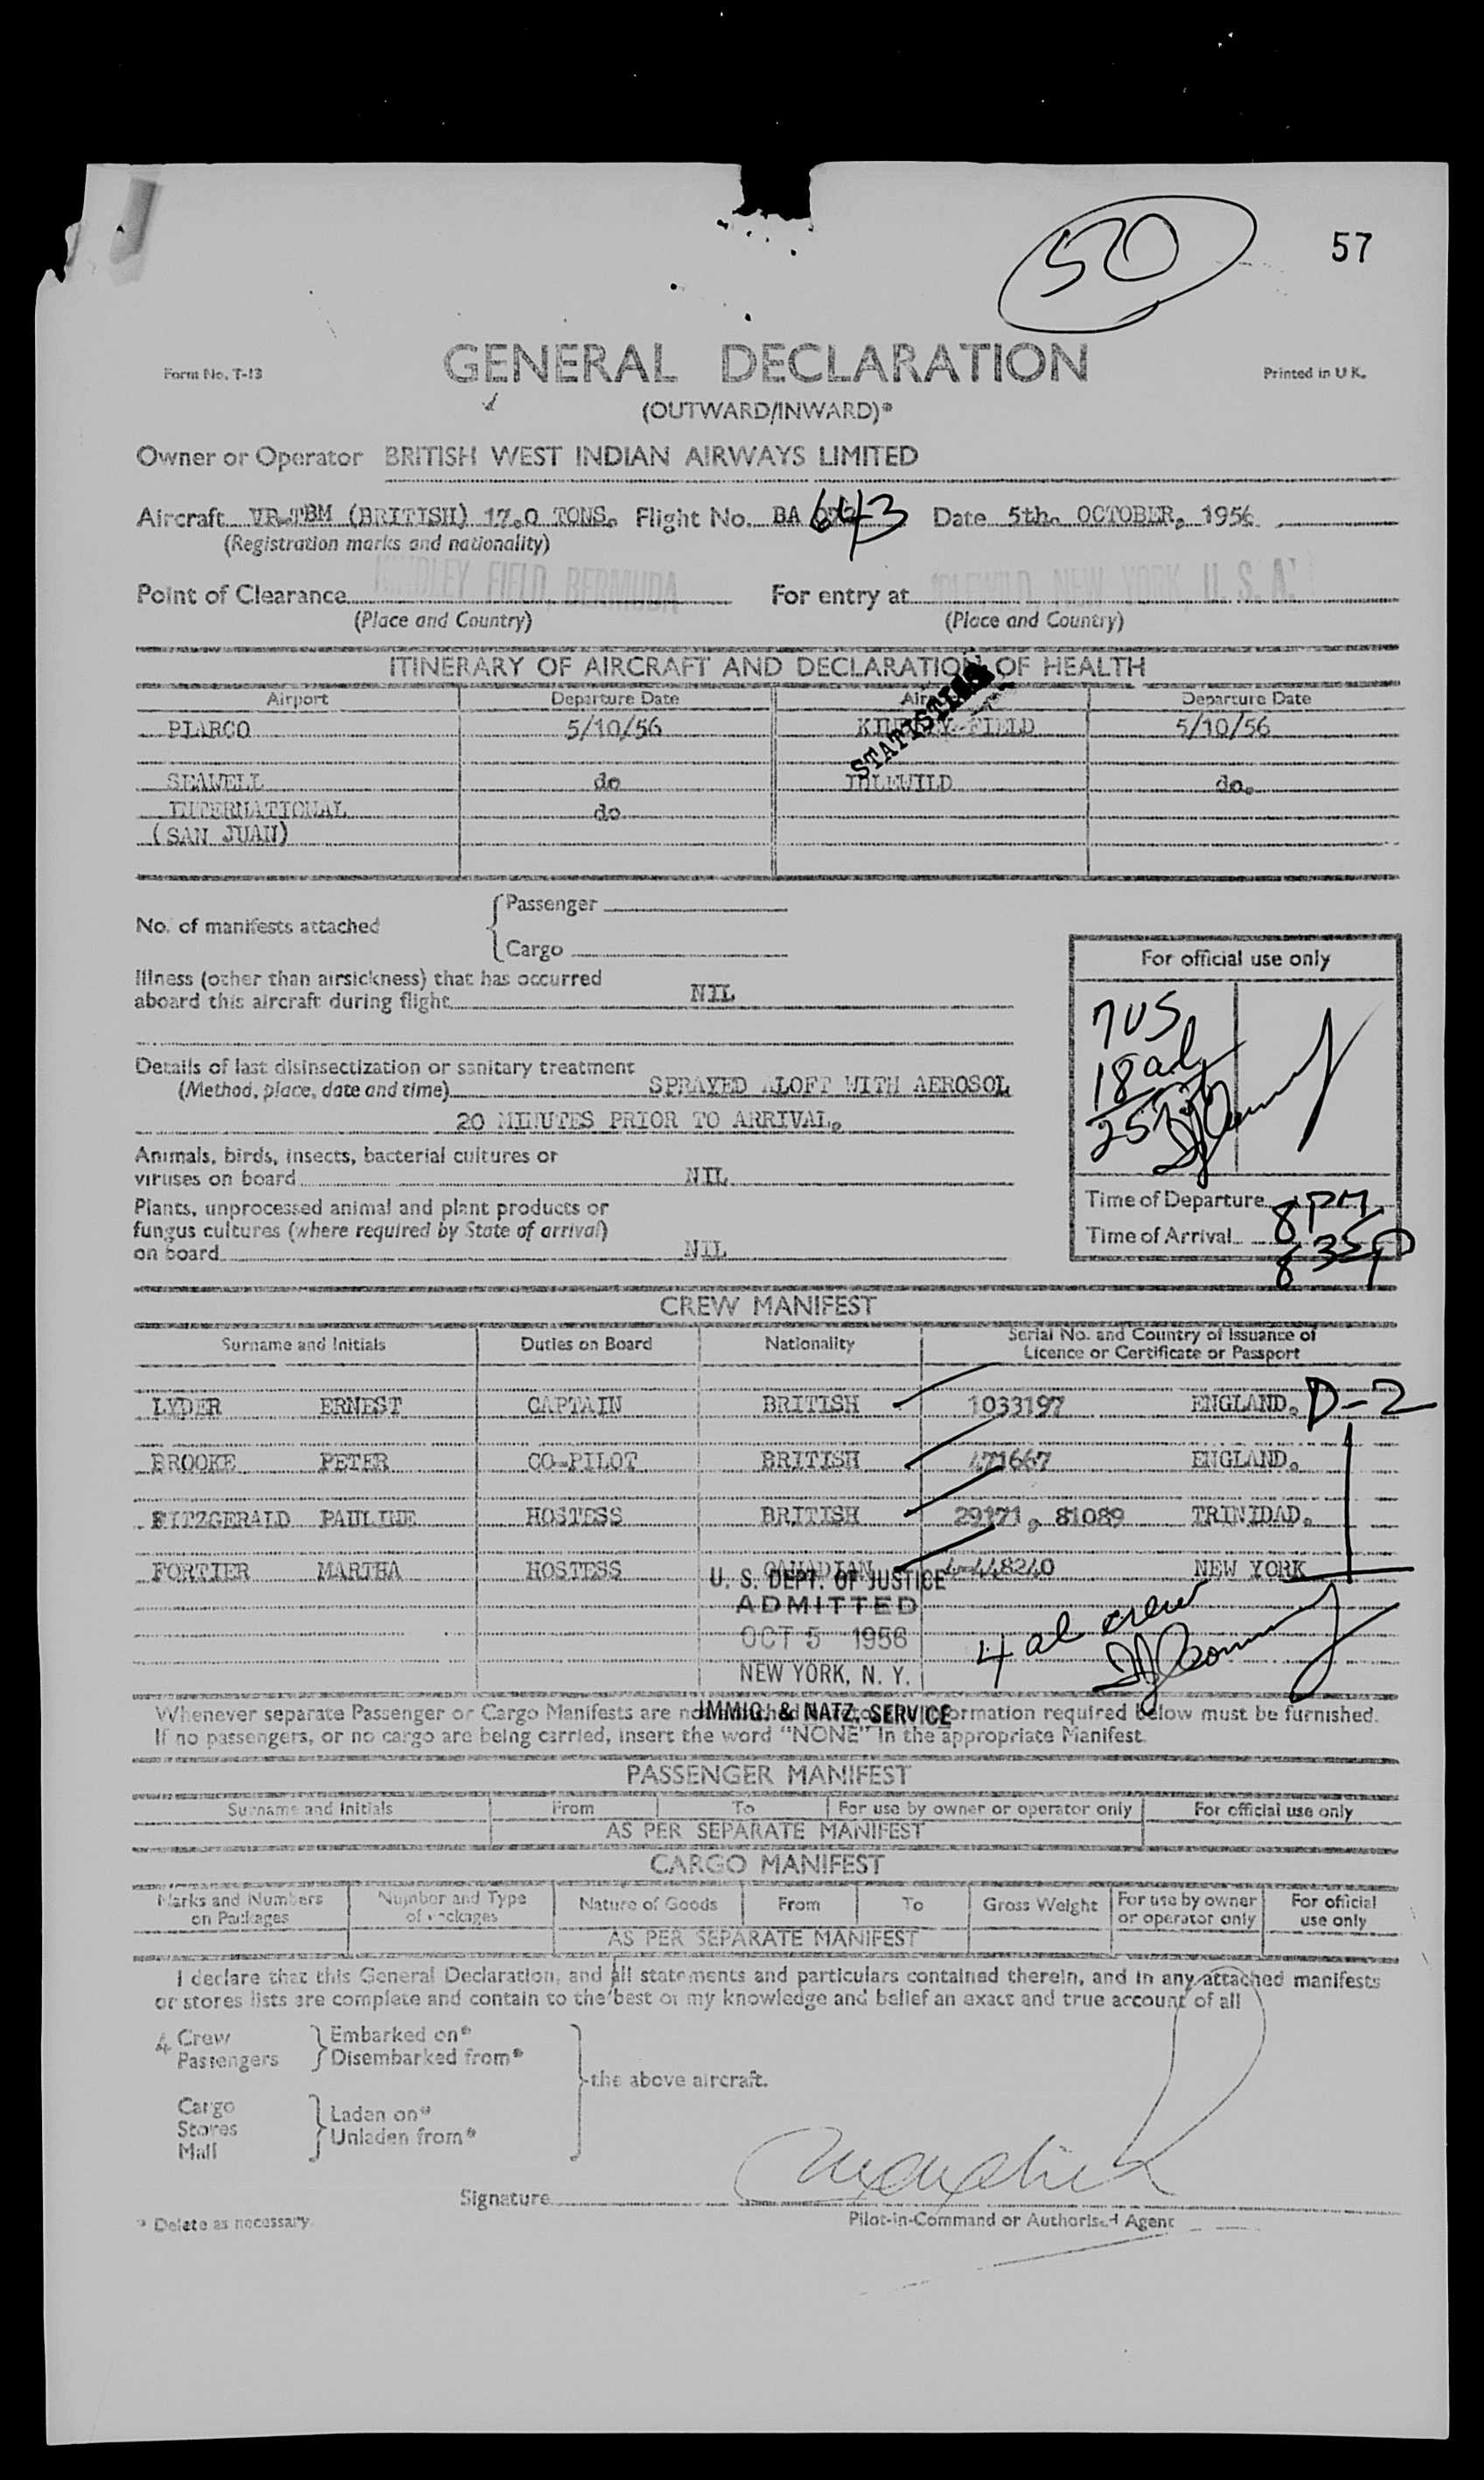 50
57
Form No. T-13
GENERAL DECLARATION
Printed in U K.
(OUTWARD/INWARD)*
Owner or Operator BRITISH WEST INDIAN AIRWAYS LIMITED
Aircraft VP-TBM (BRITISH) 17.0 TONS. Flight No. BA 643 Date 5th. OCTOBER, 1956
(Registration marks and nationality)
Point of Clearance KINDLEY FIELD, BERMUDA For entry at IDLEWILD NEW YORK, U. S. A.
(Place and Country) (Place and Country)
ITINERARY OF AIRCRAFT AND DECLARATION OF HEALTH
STATISTICS
Airport Departure Date Airport Departure Date
PIARCO 5/10/56 KINDLEY FIELD 5/10/56
SEAWELL do IDLEWILD do.
INTERNATIONAL do
(SAN JUAN)
No. of manifests attached
Passenger
Cargo
Illness (other than airsickness) that has occurred
aboard this aircraft during flight NIL
Details of last disinsectization or sanitary treatment
(Method, place, date and time) SPRAYED ALOFT WITH AEROSOL
20 MINUTES PRIOR TO ARRIVAL.
Animals, birds, insects, bacterial cultures or
viruses on board NIL
Plants, unprocessed animal and plant products or
fungus cultures (where required by State of arrival)
on board NIL
For official use only
7 US
18 al
25
Time of Departure 8 PM
Time of Arrival 8 35 P
CREW MANIFEST
Surname and Initials Duties on Board Nationality Serial No. and Country of Issuance of
Licence or Certificate or Passport
LYDER ERNEST CAPTAIN BRITISH 1033197 ENGLAND. D-2
BROOKE PETER CO-PILOT BRITISH 471667 ENGLAND.
FITZGERALD PAULINE HOSTESS BRITISH 29171, 81089 TRINIDAD.
FORTIER MARTHA HOSTESS CANADIAN 4-448240 NEW YORK
U. S. DEPT. OF JUSTICE
ADMITTED
OCT 5 1956
NEW YORK, N. Y.
IMMIG. & NATZ. SERVICE
4 al crew
Whenever separate Passenger or Cargo Manifests are not attached information required below must be furnished.
If no passengers, or no cargo are being carried, insert the word "NONE" in the appropriate Manifest.
PASSENGER MANIFEST
Surname and Initials From To For use by owner or operator only For official use only
AS PER SEPARATE MANIFEST
CARGO MANIFEST
Marks and Numbers on Packages Number and Type of Packages Nature of Goods From To Gross Weight For use by owner or operator only For official use only
AS PER SEPARATE MANIFEST
I declare that this General Declaration, and all statements and particulars contained therein, and in any attached manifests
or stores lists are complete and contain to the best of my knowledge and belief an exact and true account of all
4 Crew Embarked on*
Passengers Disembarked from*
the above aircraft.
Cargo
Stores Laden on*
Mail Unladen from*
Signature
* Delete as necessary.
Pilot-in-Command or Authorised Agent